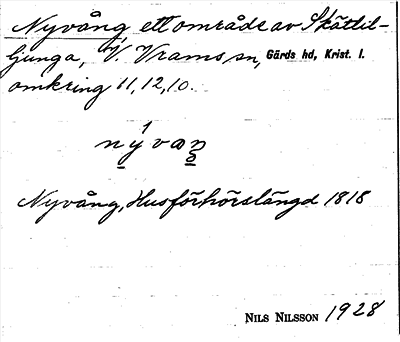 Nyvång, ett område av Skättil-
ljunga, V. Vrams sn, Gärds hd, Krist. l.
omkring 11, 12, 10.
Nyvång, Husförhörslängd 1818
NILS NILSSON 1928